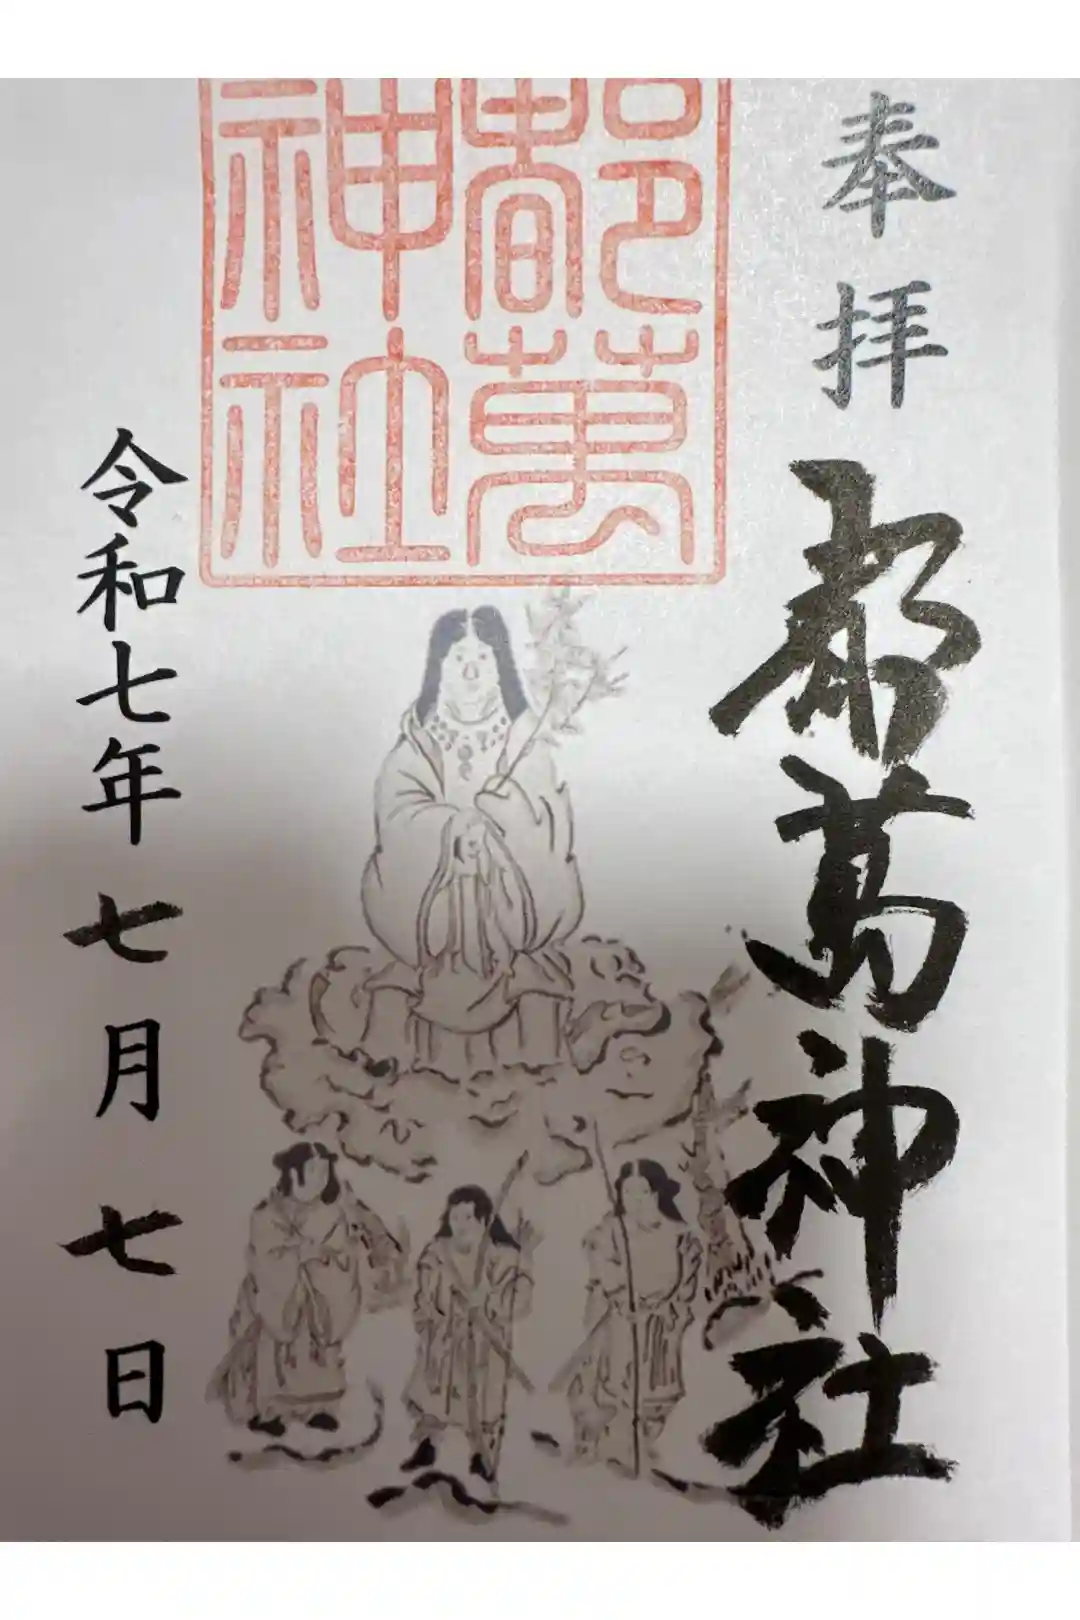 奉拝
都萬神社
都萬
神社
令和七年七月七日